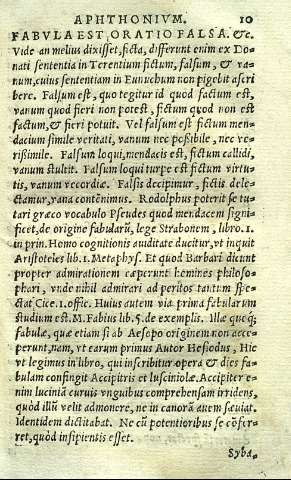 APHTHONIVM. 10
FABVLA EST ORATIO FALSA. &c.
Vide an melius dixisset, ficta, differunt enim ex Do-
nati sententia in Terentium fictum, falsum, & va-
num, cuius sententiam in Eunuchum non pigebit ascri
bere. Falsum est, quo tegitur id quod factum est,
vanum quod fieri non potest, fictum quod non est
factum, & fieri potuit. Vel falsum est fictum men-
dacium simile veritati, vanum nec poßibile, nec ve-
risimile. Falsum loqui, mendacis est, fictum callidi,
vanum stulti. Falsum loqui turpe est fictum virtu-
tis, vanum vecordiæ. Falsis decipimur, fictis dele-
ctamur, vana contēnimus. Rodolphus poterit se tu-
tari græco vocabulo Pseudes quod mendacem signi-
ficet, de origine fabularū, lege Strabonem, libro. 1.
in prin. Homo cognitionis auditate ducitur, vt inquit
Aristoteles lib. 1. Metaphys. Et quod Barbari dicunt
propter admirationem cæperunt homines philoso-
phari, vnde nihil admirari ad peritos tantùm spe-
ctat Cice. 1. offic. Huius autem via prima fabularum
studium est. M. Fabius lib. 5. de exemplis. Illæ quoq;
fabulæ, quæ etiam si ab Aesopo originem non acce-
perunt, nam, vt earum primus Autor Hesiodus, Hic
vt legimus in libro, qui inscribitur opera & dies fa-
bulam confingit Accipitris et lusciniolæ. Accipiter e-
nim luciniā curuis vnguibus comprehensam irridens,
quòd illū velit admonere, ne in canorā autem sæuiat.
Identidem dictitabat. Ne cū potentioribus se cōfer-
ret, quòd insipientis esset.
Syba-